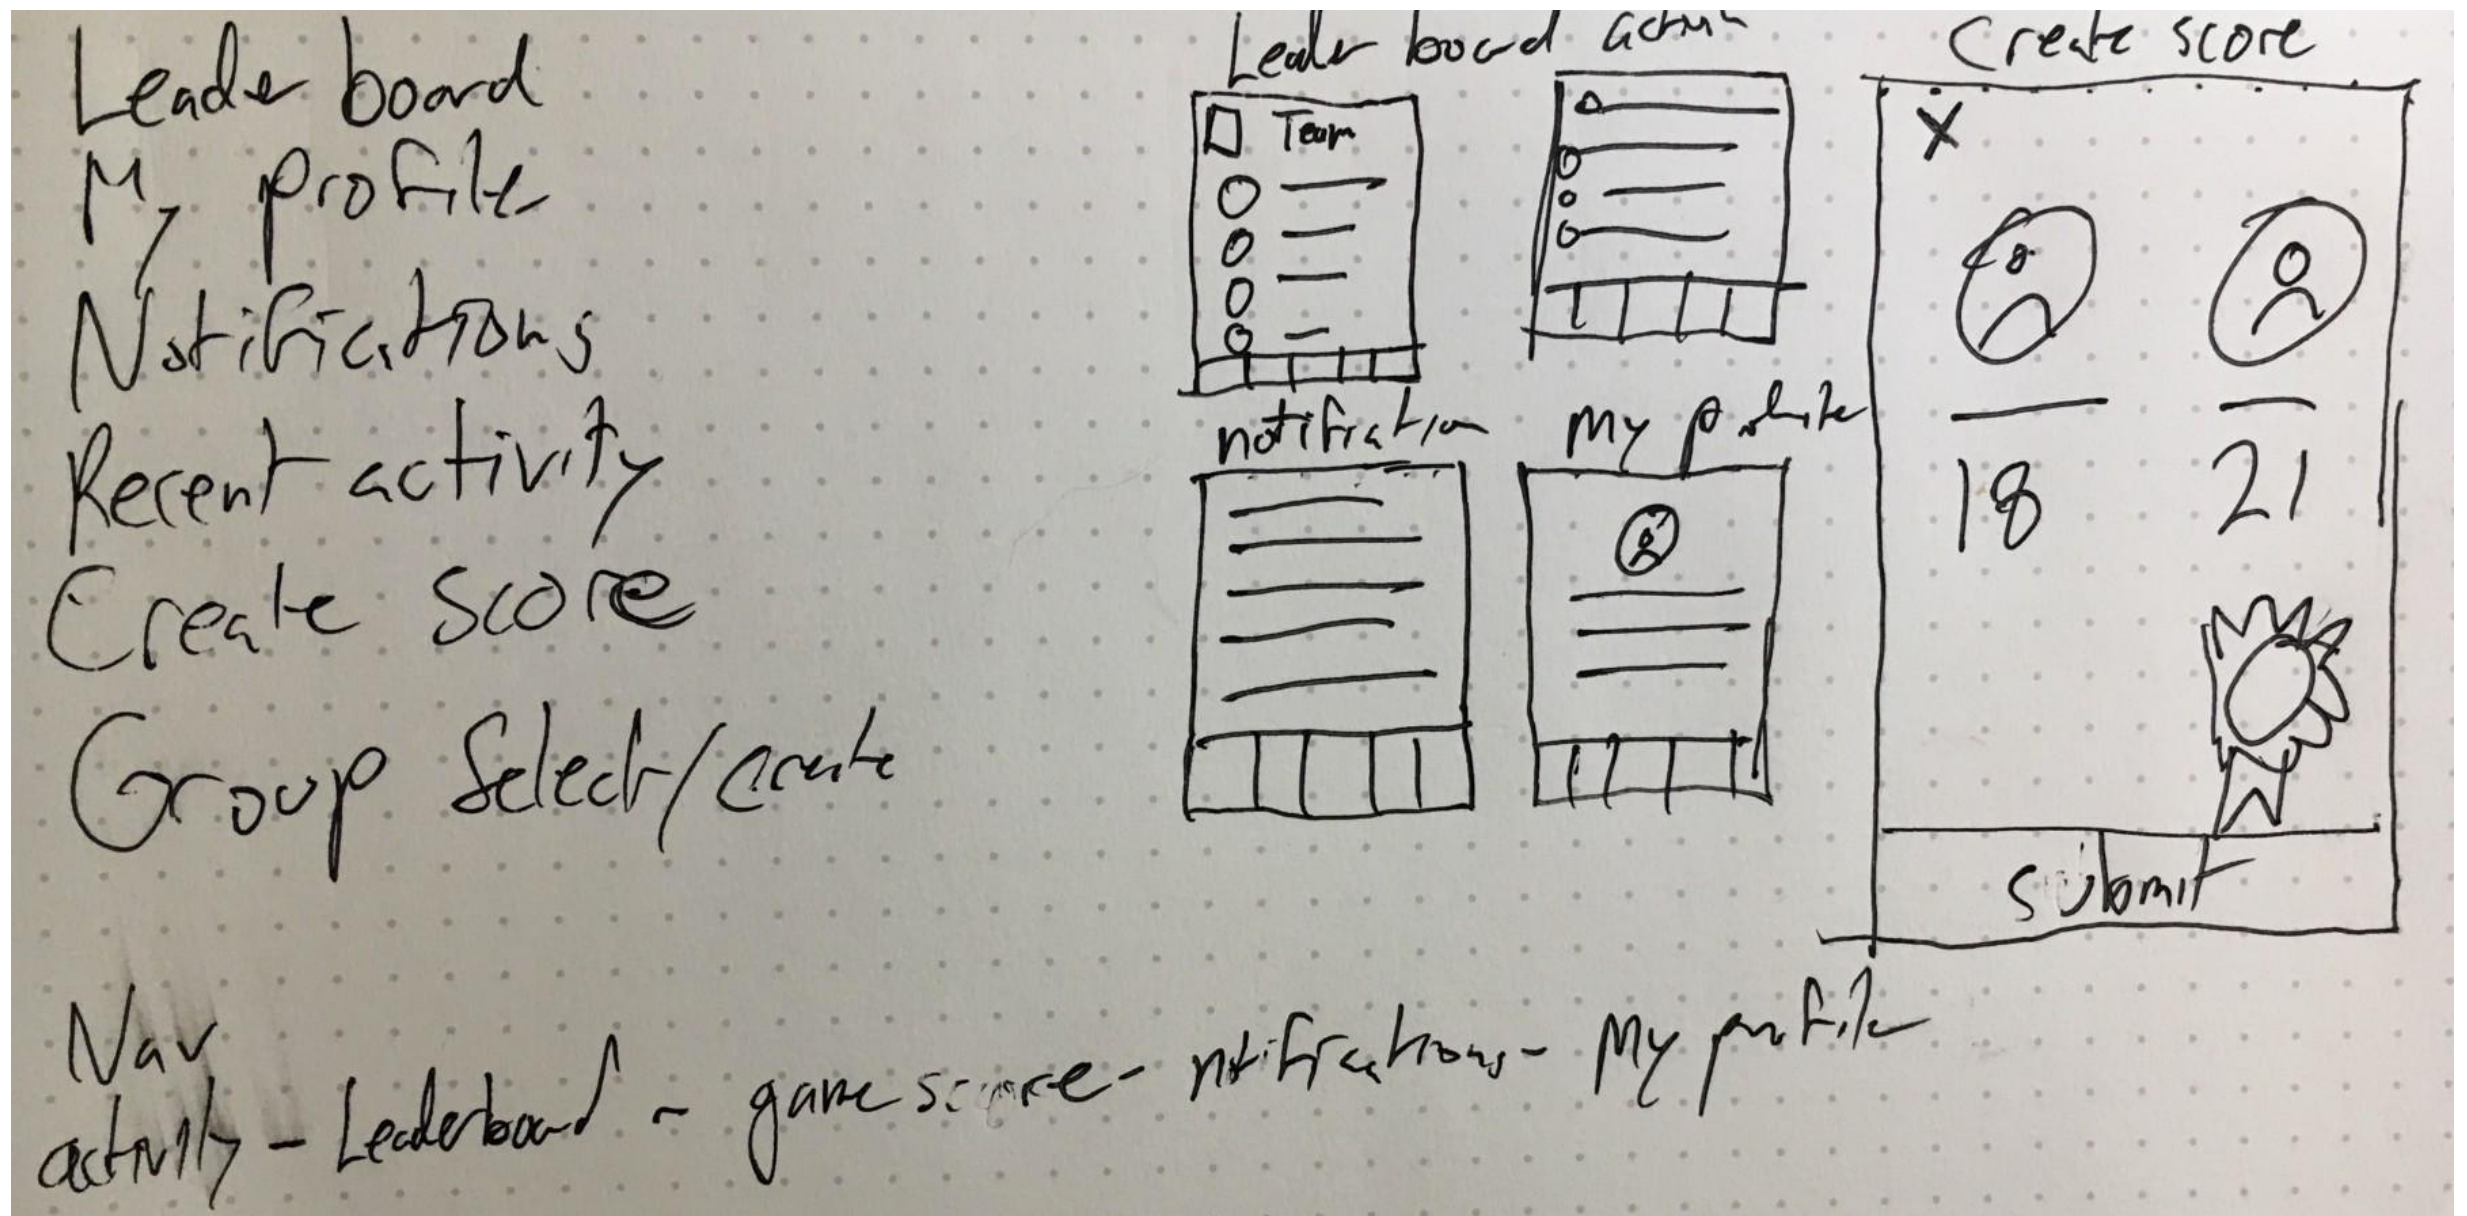 Leader board
My profile
Notifications
Recent activity
Create score
Group Select/create
Leader board
Team
notification
My profile
Create score
X
18 21
submit
Nav
activity - Leaderboard - game score - notifications - My profile